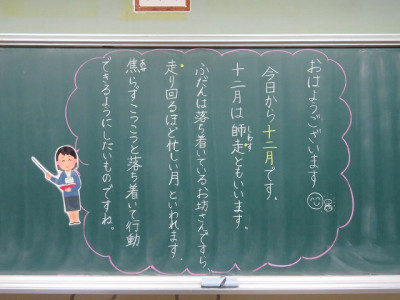 おはようございます
今日から十二月です。
十二月は師走ともいいます。
しわす
ふだんは落ち着いているお坊さんですら、
走り回るほど忙しい月といわれます。
焦らずこつこつと落ち着いて行動
できるようにしたいものですね。